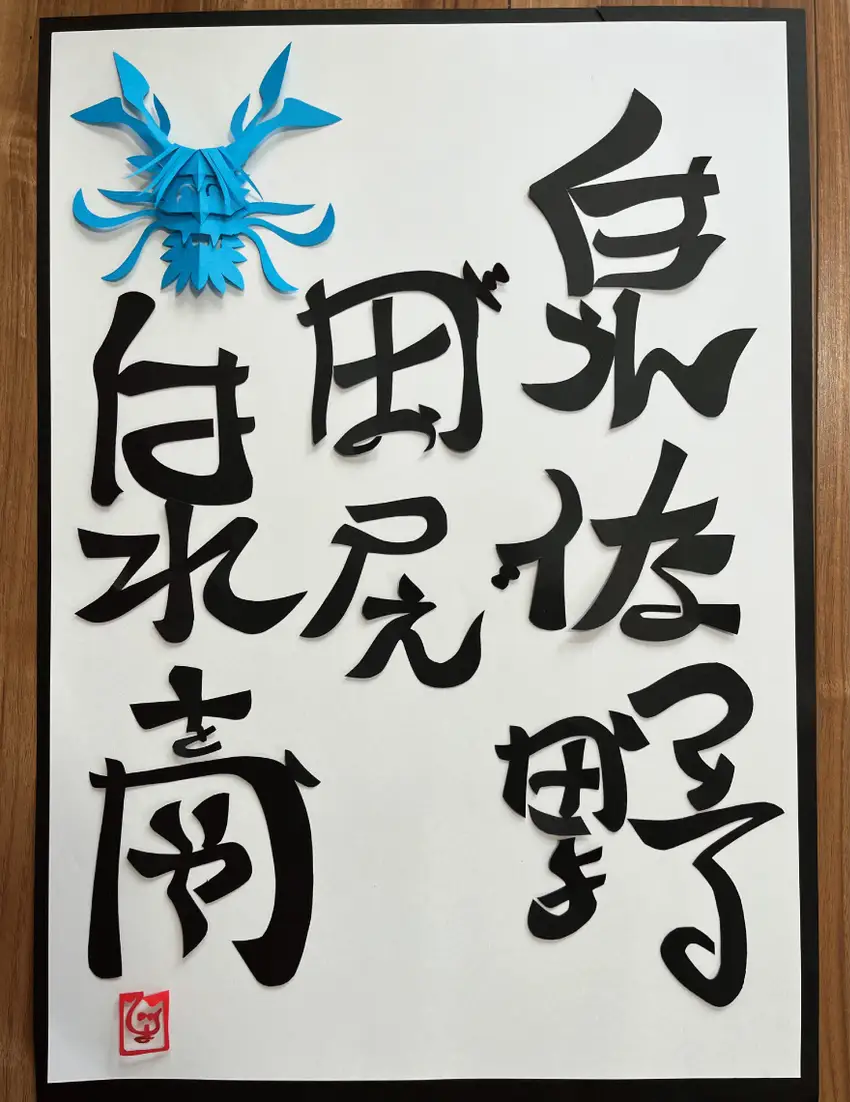 泉佐野
田尻
泉南